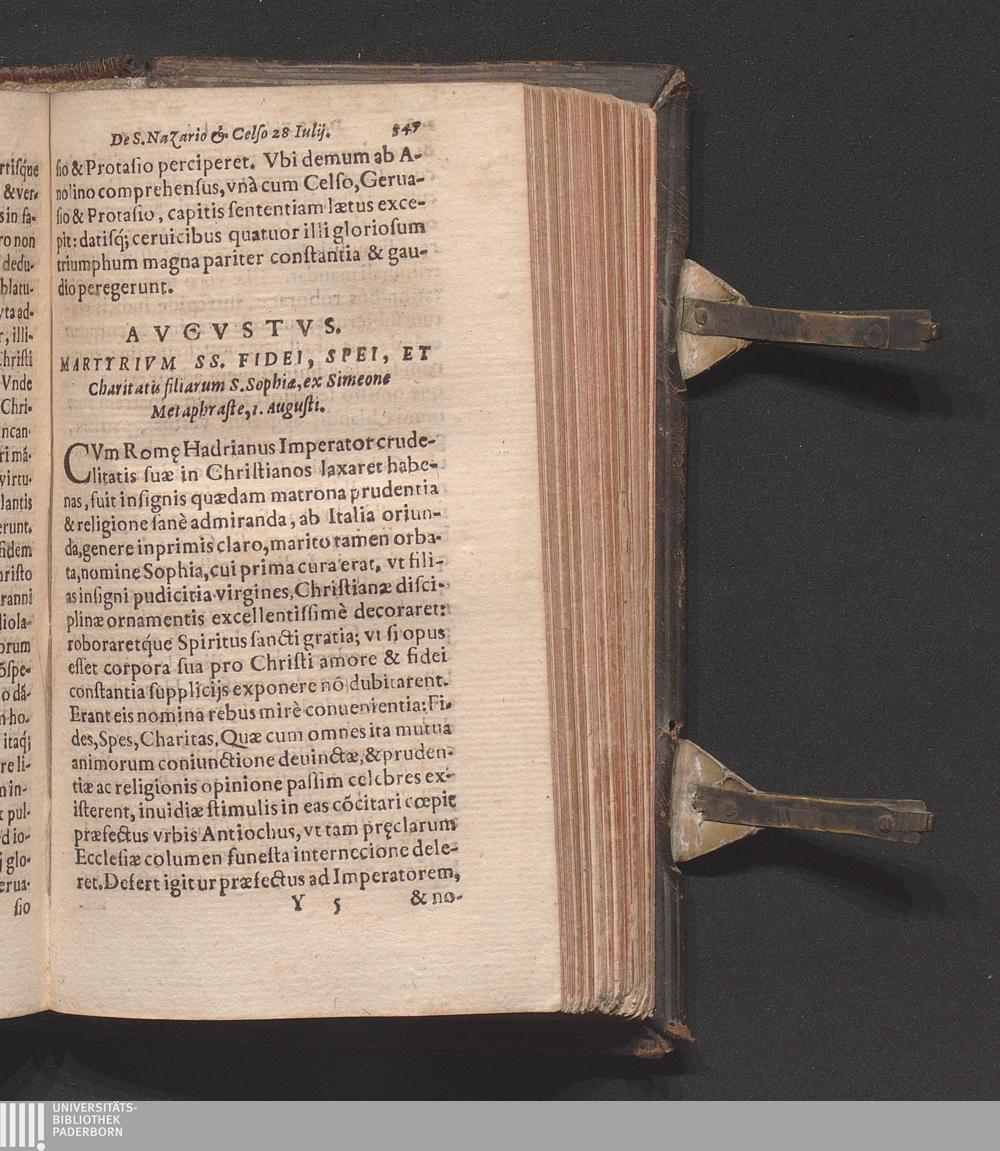 rtisq́ue
& ver-
s in fa-
ro non
dedu-
blatu-
vta ad-
r, illi-
Christi
Vnde
Chri-
ncan-
ri má-
virtu-
lantis
erunt.
fidem
hristo
ranni
liola-
orum
õspe-
o dá-
n ho-
itaq́;
re li-
n in-
t pul-
d io-
j glo-
erua-
sio
De S. Nazario & Celso 28 Iulij. 347
sio & Protasio perciperet. Vbi demum ab A-
nolino comprehensus, vnà cum Celso, Gerua-
sio & Protasio, capitis sententiam lætus exce-
pit: datisq́; ceruicibus quatuor illi gloriosum
triumphum magna pariter constantia & gau-
dio peregerunt.
AVGVSTVS.
MARTYRIVM SS. FIDEI, SPEI, ET
Charitatis filiarum S. Sophiæ, ex Simeone
Metaphraste, 1. Augusti.
CVm Romę Hadrianus Imperator crude-
litatis suæ in Christianos laxaret habe-
nas, fuit insignis quædam matrona prudentia
& religione sanè admiranda, ab Italia oriun-
da, genere inprimis claro, marito tamen orba-
ta, nomine Sophia, cui prima cura erat, vt fili-
as insigni pudicitia virgines, Christianæ disci-
plinæ ornamentis excellentissimè decoraret:
roboraretq́ue Spiritus sancti gratia; vt si opus
esset corpora sua pro Christi amore & fidei
constantia supplicijs exponere nó dubitarent.
Erant eis nomina rebus mirè conuenientia: Fi-
des, Spes, Charitas. Quæ cum omnes ita mutua
animorum coniunctione deuinctæ, & pruden-
tiæ ac religionis opinione passim celebres ex-
isterent, inuidiæ stimulis in eas cócitari cœpit
præfectus vrbis Antiochus, vt tam pręclarum
Ecclesiæ columen funesta internecione dele-
ret. Defert igitur præfectus ad Imperatorem,
Y 5 & no-
UNIVERSITÄTS-
BIBLIOTHEK
PADERBORN